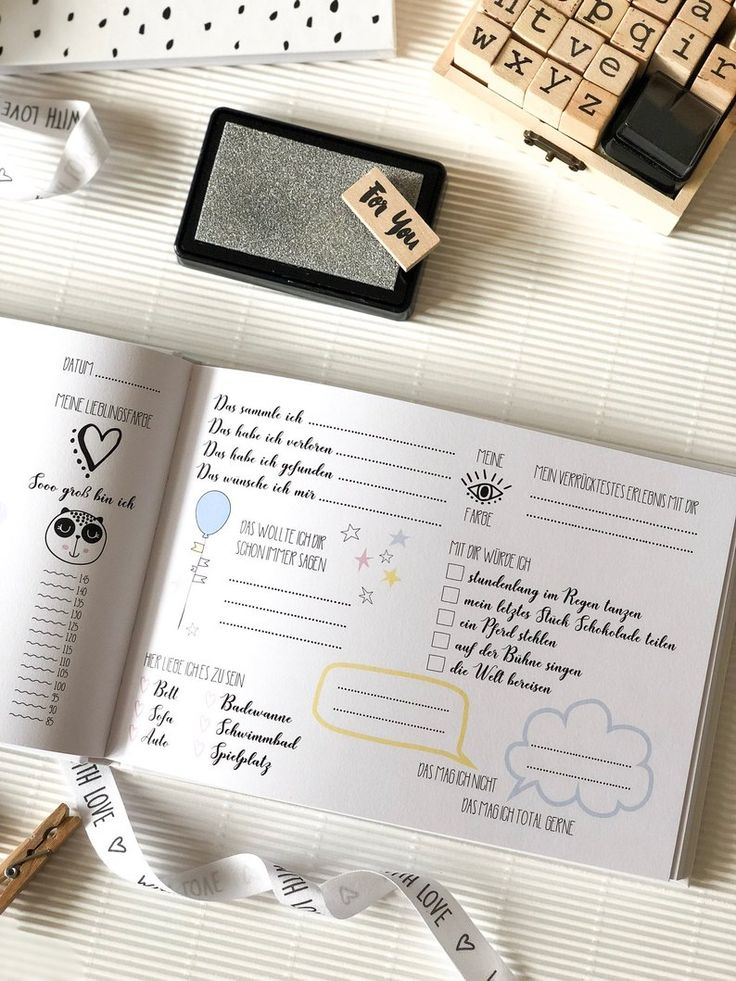 WITH LOVE
p q
t u v p q r
w x y z e
For You
DATUM
MEINE LIEBLINGSFARBE
Sooo groß bin ich
145
140
135
130
125
120
115
110
105
100
95
90
85
Das sammle ich
Das habe ich verloren
Das habe ich gefunden
Das wünsche ich mir
DAS WOLLTE ICH DIR
SCHON IMMER SAGEN
HIER LIEBE ICH ES ZU SEIN
Bett
Sofa
Auto
Badewanne
Schwimmbad
Spielplatz
MEINE
FARBE
MEIN VERRÜCKTESTES ERLEBNIS MIT DIR
MIT DIR WÜRDE ICH
stundenlang im Regen tanzen
mein letztes Stück Schokolade teilen
ein Pferd stehlen
auf der Bühne singen
die Welt bereisen
DAS MAG ICH NICHT
DAS MAG ICH TOTAL GERNE
WITH LOVE
WITH LOVE
WITH LOVE